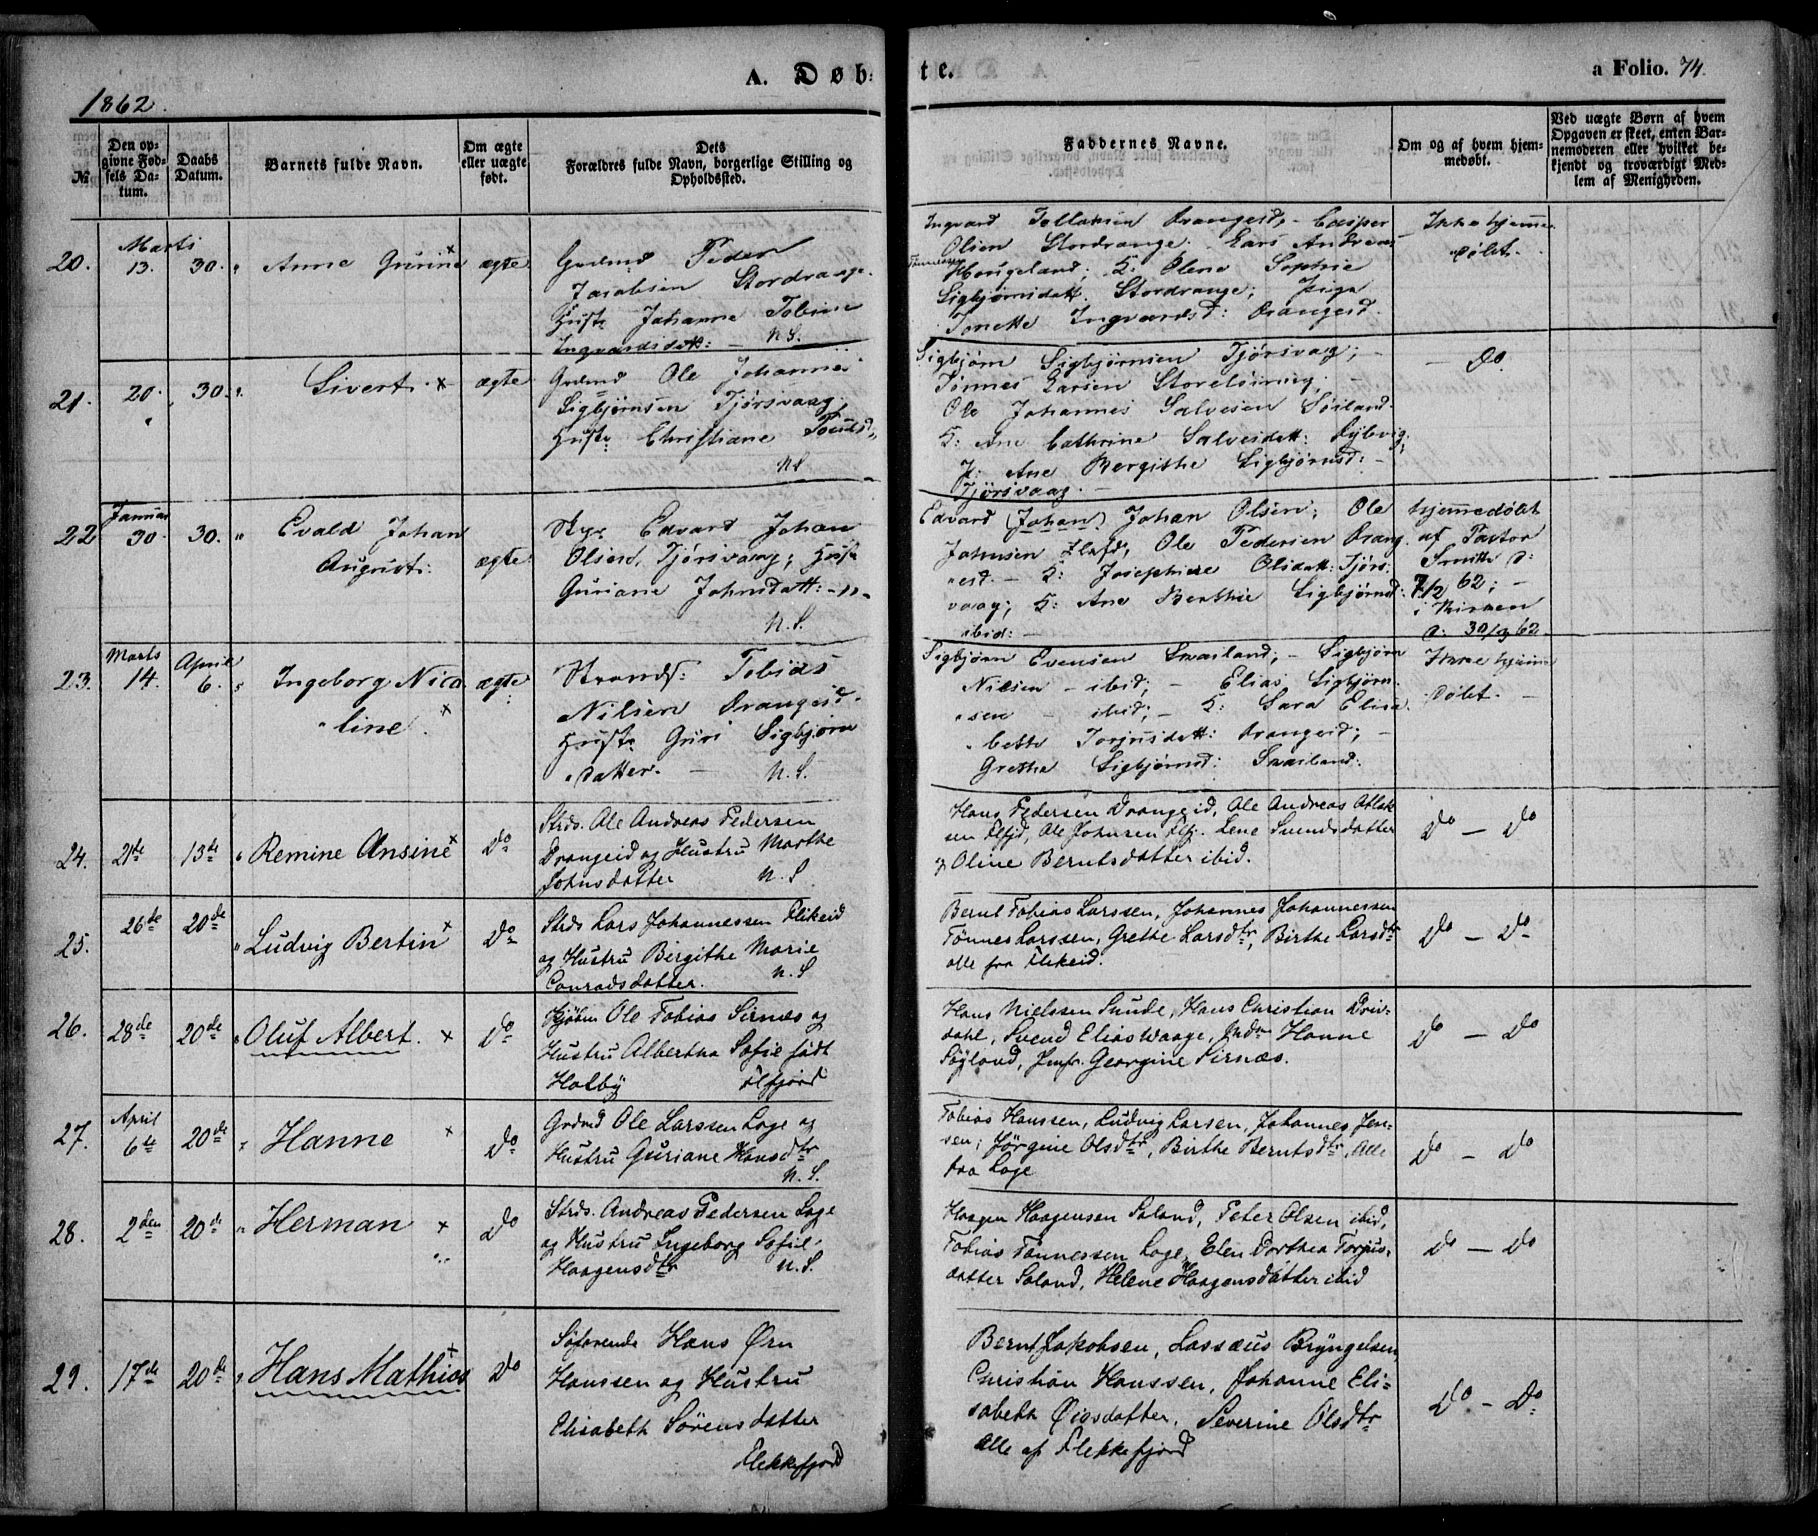 1862.
A. Døb-
te.
a Folio. 74.
№
Den op-
givne Fød-
sels Da-
tum.
Daabs
Datum.
Barnets fulde Navn.
Om ægte
eller uægte
født.
Dets
Forældres fulde Navn, borgerlige Stilling og
Opholdssted.
Faddernes Navne.
Om og af hvem hjem-
medøbt.
Ved uægte Børn af hvem
Opgaven er skeet, enten Bar-
nemoderen eller hvilket be-
kjendt og troværdigt Med-
lem af Menigheden.
20.
Marts
13.
30.
Anne Gurine ×
ægte
Grdmd Peder
Jacobsen Stordrange
Hustr Johanne Tobine
Ingvardsdatt: – N.S.
Ingvard Tollaksen Drangeid, – Casper
Olsen Stordrange. Lars Andreas
Hougeland; K: Olene Sophie
Sigbjørnsdatt. Stordrange; Pige
Tonette Ingvardsd: Drangeid.
Ikke hjemme
døbt.
21.
20.
30.
Sivert. ×
ægte
Grdmd Ole Johannes
Sigbjørnsen Tjørsvaag,
Hustr Christiane
N.S
Sigbjørn Sigbjørnsen Tjørsvaag; –
Tønnes Larsen
Ole Johannes Salvesen Søiland.
K: Ane Cathrine Salvesdatt:
P: Ane Bergithe Sigbjørnsd: –
Tjørsvaag. –
– do.
22
Januar
30.
30.
Evald Johan
August.
ægte
Edvard Johan
Olsen, Tjørsvaag; Hustr
Guriane Johnsdatt: – " –
N.S.
Edvard (Johan) Johan Olsen; Ole
Johnsen Ole Pedersen Drang
eid. – K: Josephine Olsdatt: Tjørs.
vaag; K: Ane Berthie Sigbjørnsd:
ibid: –
Hjemmedøbt
af Pastor
Smith d:
7/2 62; –
i Kirken
d: 30/3 62.
23.
Marts
14.
April
6.
Ingeborg Nico
line. ×
ægte
Strands: Tobias
Nilsen Drangeid.
Hustr Guri Sigbjørns
datter. – N.S.
Sigbjørn Evensen Smailand; – Sigbjørn
Nilsen – ibid; – Elias Sigbjørn.
sen – ibid; – K: Sara Elisa.
beth Torjusdatt: Drangeid; –
Grethe Sigbjørnsd: Smailand.
Ikke hjemme
døbt. –
24.
21de
13de
Remine Ansine ×
Do
Strds. Ole Andreas Pedersen
Drangeid og Hustru Marthe
Johnsdatter N.S
Hans Pedersen Drangeid, Ole Andreas Aslak
sen Flfjd, Ole Johnsen Flfj. Lene Svendsdatter
og Oline Berntsdatter ibid.
Do – Do
25.
26de
20de
Ludvig Bertin ×
Do
Strds Lars Johannessen Flikeid
og Hustru Birgithe Marie
Conradsdatter. N.S
Bernt Tobias Larssen, Johannes Johannessen
Tønnes Larssen, Grethe Larsdtr, Birthe Larsdtr
alle fra Flikeid.
Do – Do
26.
28de
20de
Oluf Albert. ×
Do
Kjøbm Ole Tobias Sirnæs og
Hustru Albertha Sofie født
Holby Flfjord
Hans Nielssen Sunde, Hans Christian Driv-
dahl, Svend Elias Waage, Hanne
Søyland, Jmfr. Georgine Sirnæs.
Do – Do
27.
April
6te
20de
Hanne ×
Do
Grdmd Ole Larssen Loge og
Hustru Guriane Hansdtr
N.S.
Tobias Hanssen, Ludvig Larsen, Johannes Jen-
sen, Jørgine Olsdtr, Birthe Berntsdtr, Alle
fra Loge
Do – Do
28.
2den
20de
Herman ×
Do
Strds. Andreas Pedersen Loge
og Hustru Ingeborg Sofie
Haagensdtr N.S.
Haagen Haagensen Soland, Peter Olsen ibid,
Tobias Tønnessen Loge, Elen Dorthea Torjus-
datter Soland, Helene Haagensdatter ibid
Do – Do
29.
17de
20de
Hans Mathias ×
Do
Søfarende Hans Ørn
Hanssen og Hustru
Elisabeth Sørensdatter
Flekkefjord
Bernt Jakobsen, Lassæus Bryngelsen,
Christian Hanssen, Johanne Eli-
sabeth Øigsdatter, Severine Olsdtr
Alle af Flekkefjord
Do. – Do.